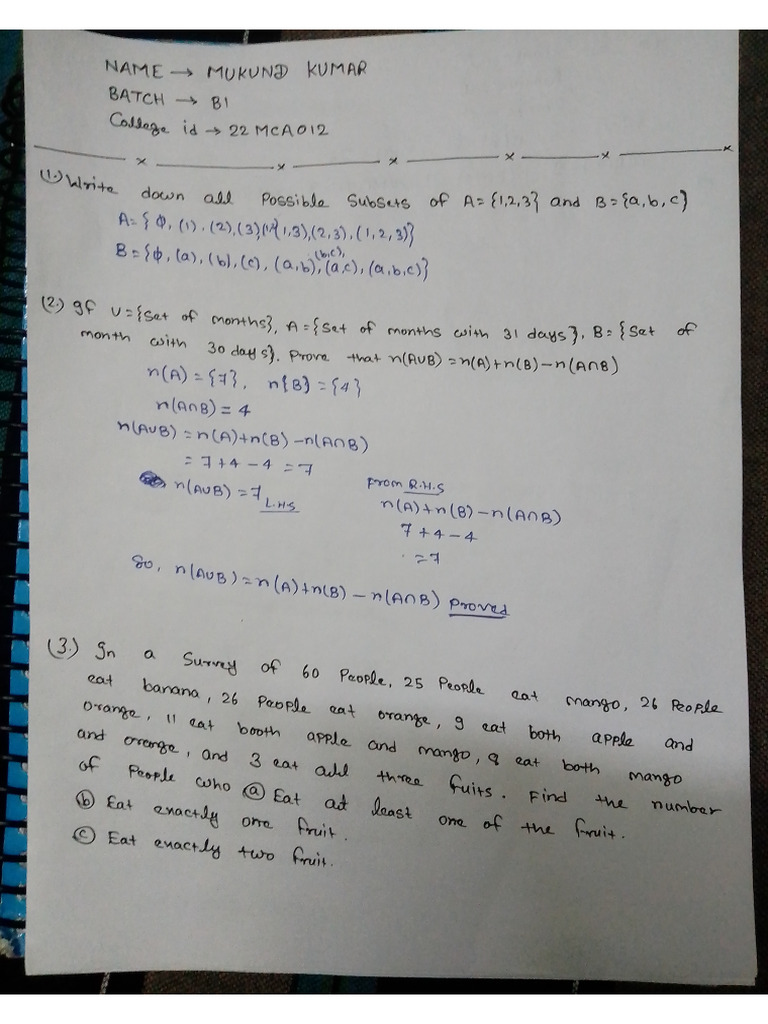 NAME → MUKUND KUMAR
BATCH → B1
College id → 22 MCA012
(1.) Write down all Possible Subsets of A={1,2,3} and B={a,b,c}
A={ϕ, (1), (2), (3), (1,3), (2,3), (1,2,3)}
(b,c),
B={ϕ, (a), (b), (c), (a,b), (a,c), (a,b,c)}
(2.) If U={Set of months}, A={Set of months with 31 days}, B={Set of
month with 30 days}. Prove that n(A∪B)=n(A)+n(B)−n(A∩B)
n(A)={7}, n{B}={4}
n(A∩B)=4
n(A∪B)=n(A)+n(B)−n(A∩B)
=7+4−4=7
n(A∪B)=7 L.H.S
From R.H.S
n(A)+n(B)−n(A∩B)
7+4−4
=7
So, n(A∪B)=n(A)+n(B)−n(A∩B) Proved
(3.) In a Survey of 60 People, 25 People eat mango, 26 People
eat banana, 26 People eat orange, 9 eat both apple and
orange, 11 eat booth apple and mango, 8 eat both mango
and orenge, and 3 eat all three fuits. Find the number
of People who (a) Eat at least one of the fruit.
(b) Eat exactly one fruit.
(c) Eat exactly two fruit.